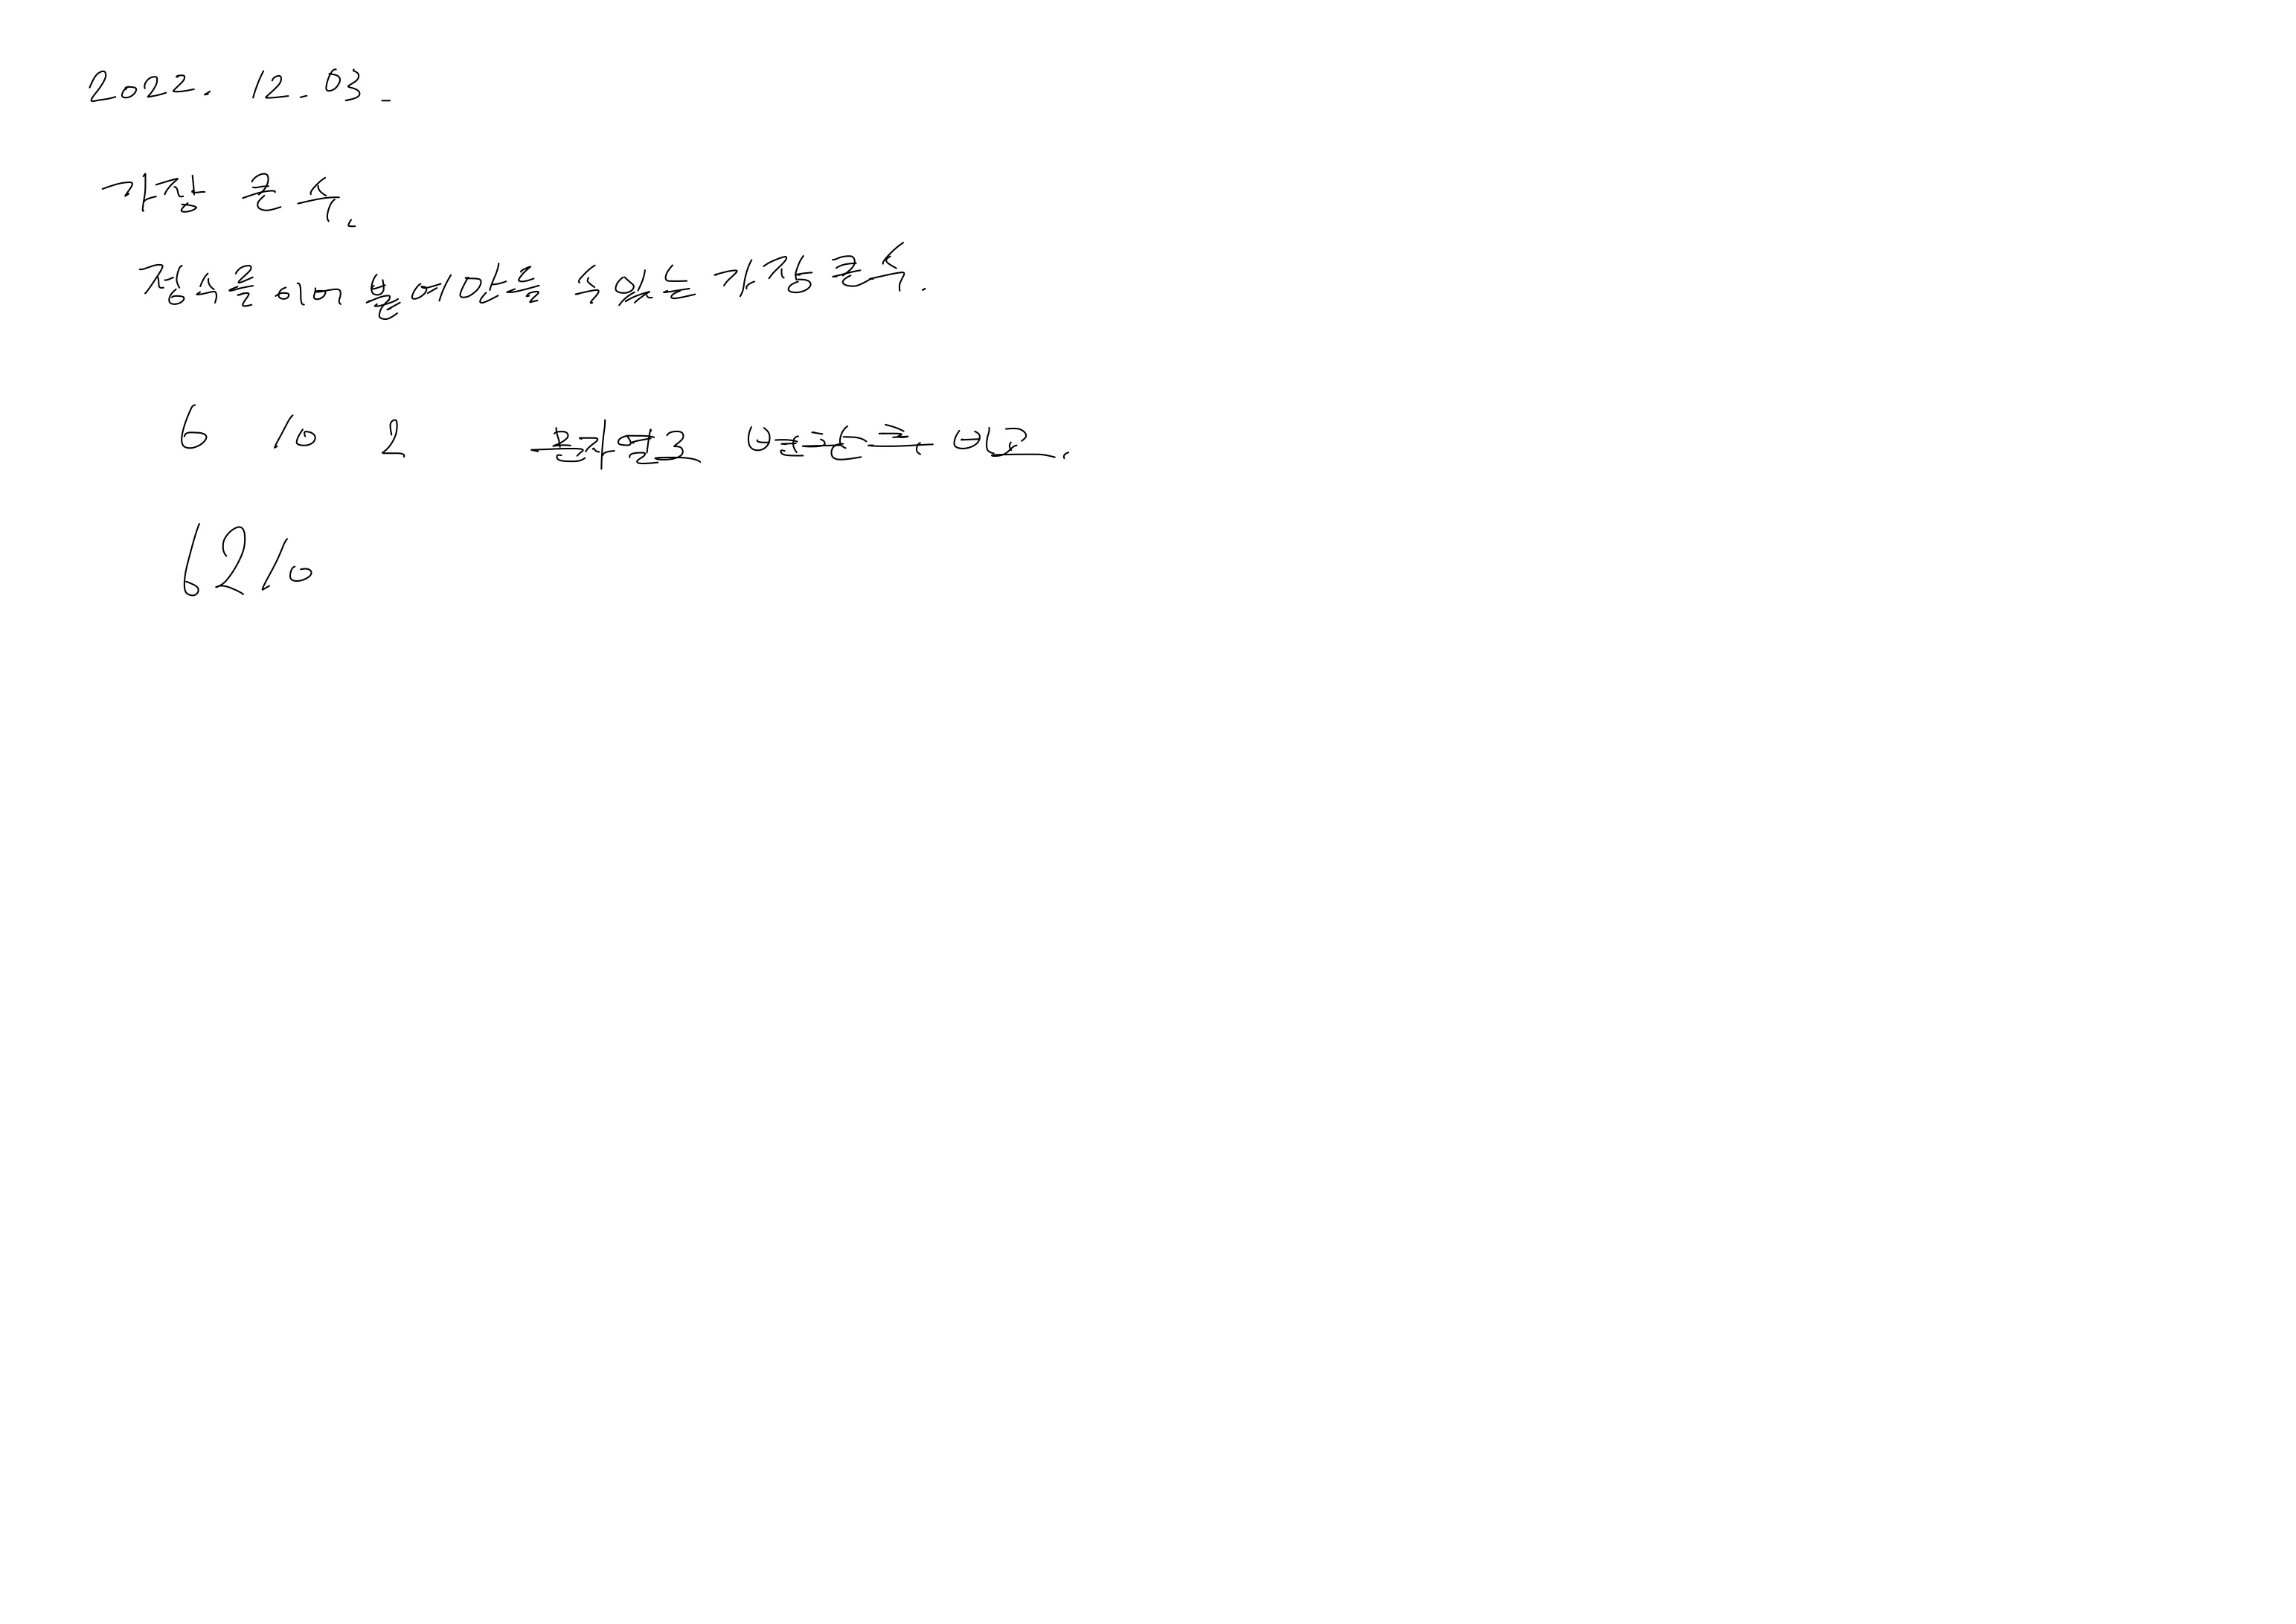 2022. 12. 03.
가장 큰 수.
정수를 이어 붙여 만들 수 있는 가장 큰 수.
6 10 2
6210